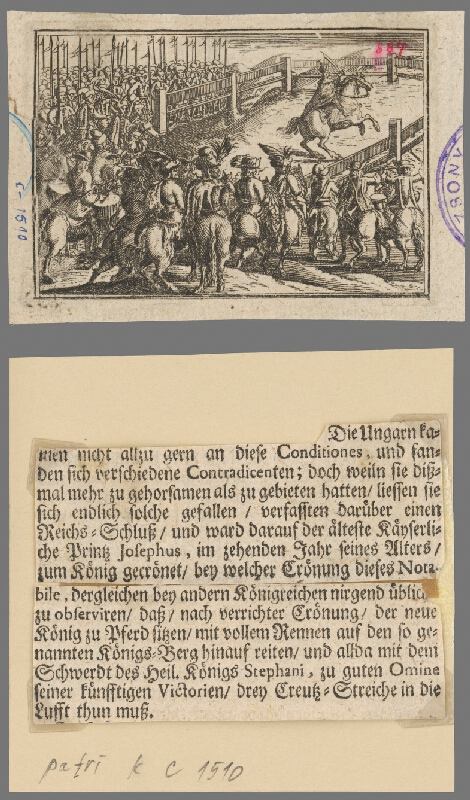 587
C-1510
ZBORNA
Die Ungarn ka-
men nicht allzu gern an diese Conditiones, und fan-
den sich verschiedene Contradicenten; doch weiln sie diß-
mal mehr zu gehorsamen als zu gebieten hatten/ liessen sie
sich endlich solche gefallen / verfassten darüber einen
Reichs-Schluß/ und ward darauf der älteste Käyserli-
che Printz Josephus, im zehenden Jahr seines Alters/
zum König gecrönet/ bey welcher Crönung dieses Nota-
bile, dergleichen bey andern Königreichen nirgend üblich
zu observiren/ daß/ nach verrichter Crönung/ der neue
König zu Pferd sitzen/ mit vollem Rennen auf den so ge-
nannten Königs-Berg hinauf reiten/ und allda mit dem
Schwerdt des Heil. Königs Stephani, zu guten Omine
seiner künfftigen Victorien/ drey Creutz-Streiche in die
Lufft thun muß.
patrí k C 1510